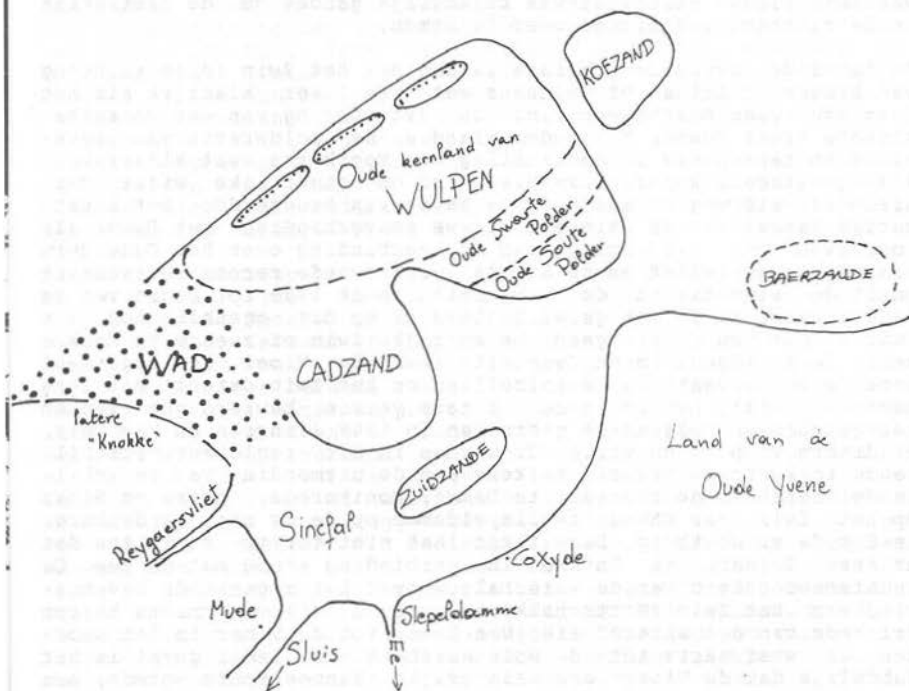 KOEZAND
Oude kernland van
WULPEN
Oude Swarte
Polder
Oude Soute
Polder
BAERZANDE
WAD
CADZAND
latere
"Knokke"
Land van de
Oude Yvene
ZUIDZANDE
Reygaersvliet
Sincfap
Coxyde
Mude
Slepeldamme
Sluis